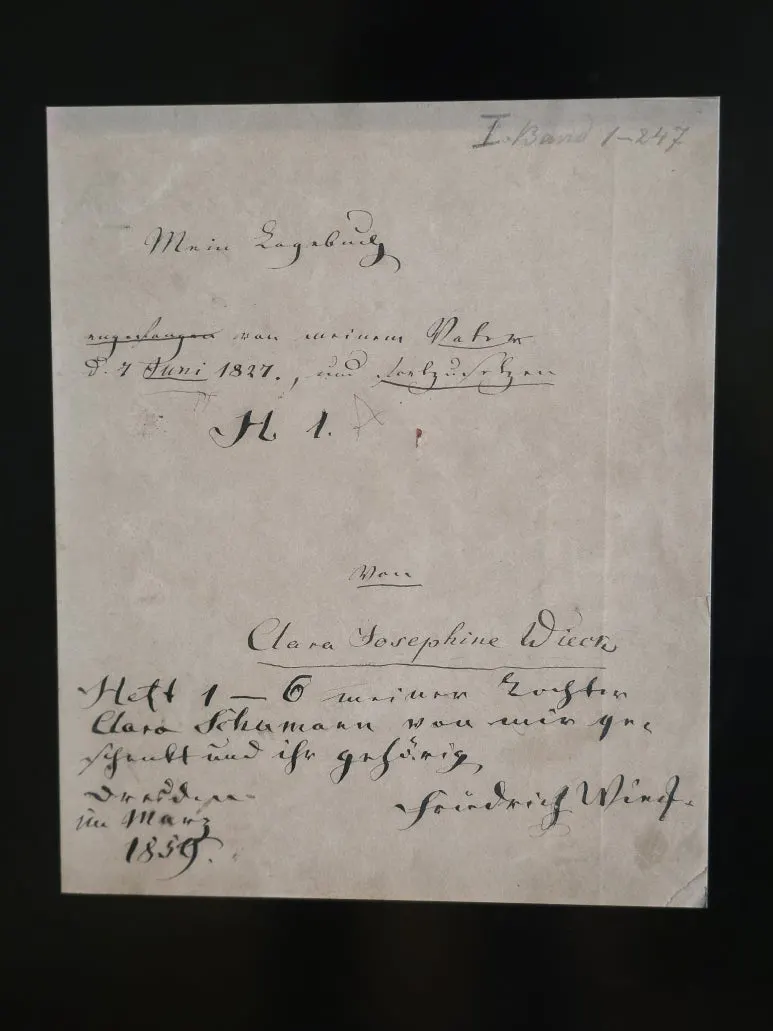 I. Band 1–247
Mein Tagebuch
angefangen von meinem Vater
d. 7 Juni 1827., und fortzusetzen
H. 1.
von
Clara Josephine Wieck
Heft 1 – 6 meiner Tochter
Clara Schumann von mir ge-
schenkt und ihr gehörig
Dresden
im März
1859.
Friedrich Wieck.